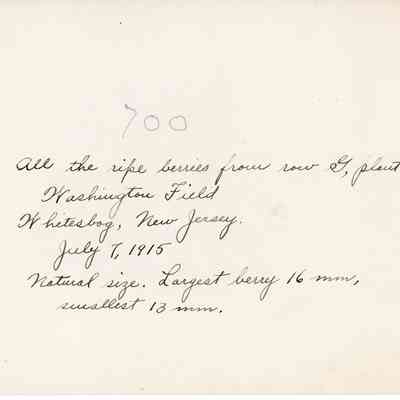 700
All the ripe berries from row G, plant
Washington Field
Whitesbog, New Jersey.
July 7, 1915
Natural size. Largest berry 16 mm,
smallest 13 mm.